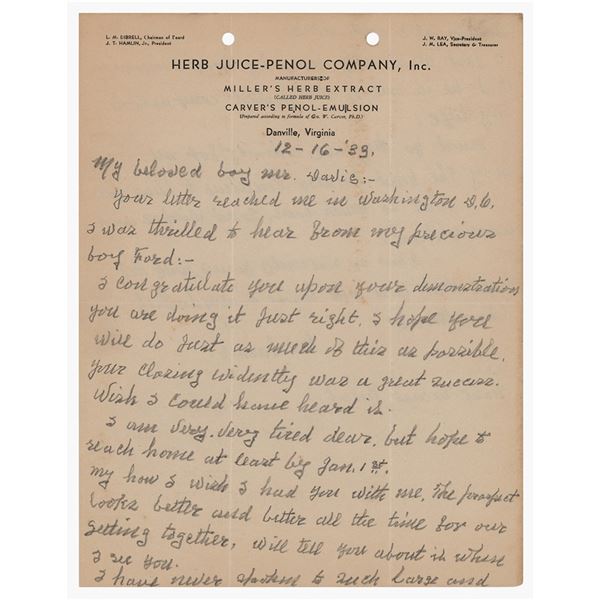 L. M. DIBRELL, Chairman of Board
J. T. HAMLIN, Jr., President
J. W. RAY, Vice-President
J. M. LEA, Secretary & Treasurer
HERB JUICE-PENOL COMPANY, Inc.
MANUFACTURERS OF
MILLER'S HERB EXTRACT
(CALLED HERB JUICE)
CARVER'S PENOL-EMULSION
(Prepared according to formula of Geo. W. Carver, Ph.D.)
Danville, Virginia
12-16-'39.
My beloved boy Mr. Davis:-
Your letter reached me in Washington D.C.
I was thrilled to hear from my precious
boy Ford:-
I congratulate you upon your demonstrations
you are doing it just right, I hope you
will do just as much of this as possible.
Your closing evidently was a great success.
Wish I could have heard it.
I am very, very tired dear, but hope to
reach home at least by Jan. 1st.
My how I wish I had you with me, The prospect
looks better and better all the time for our
getting together, will tell you about it when
I see you.
I have never spoken to such large and